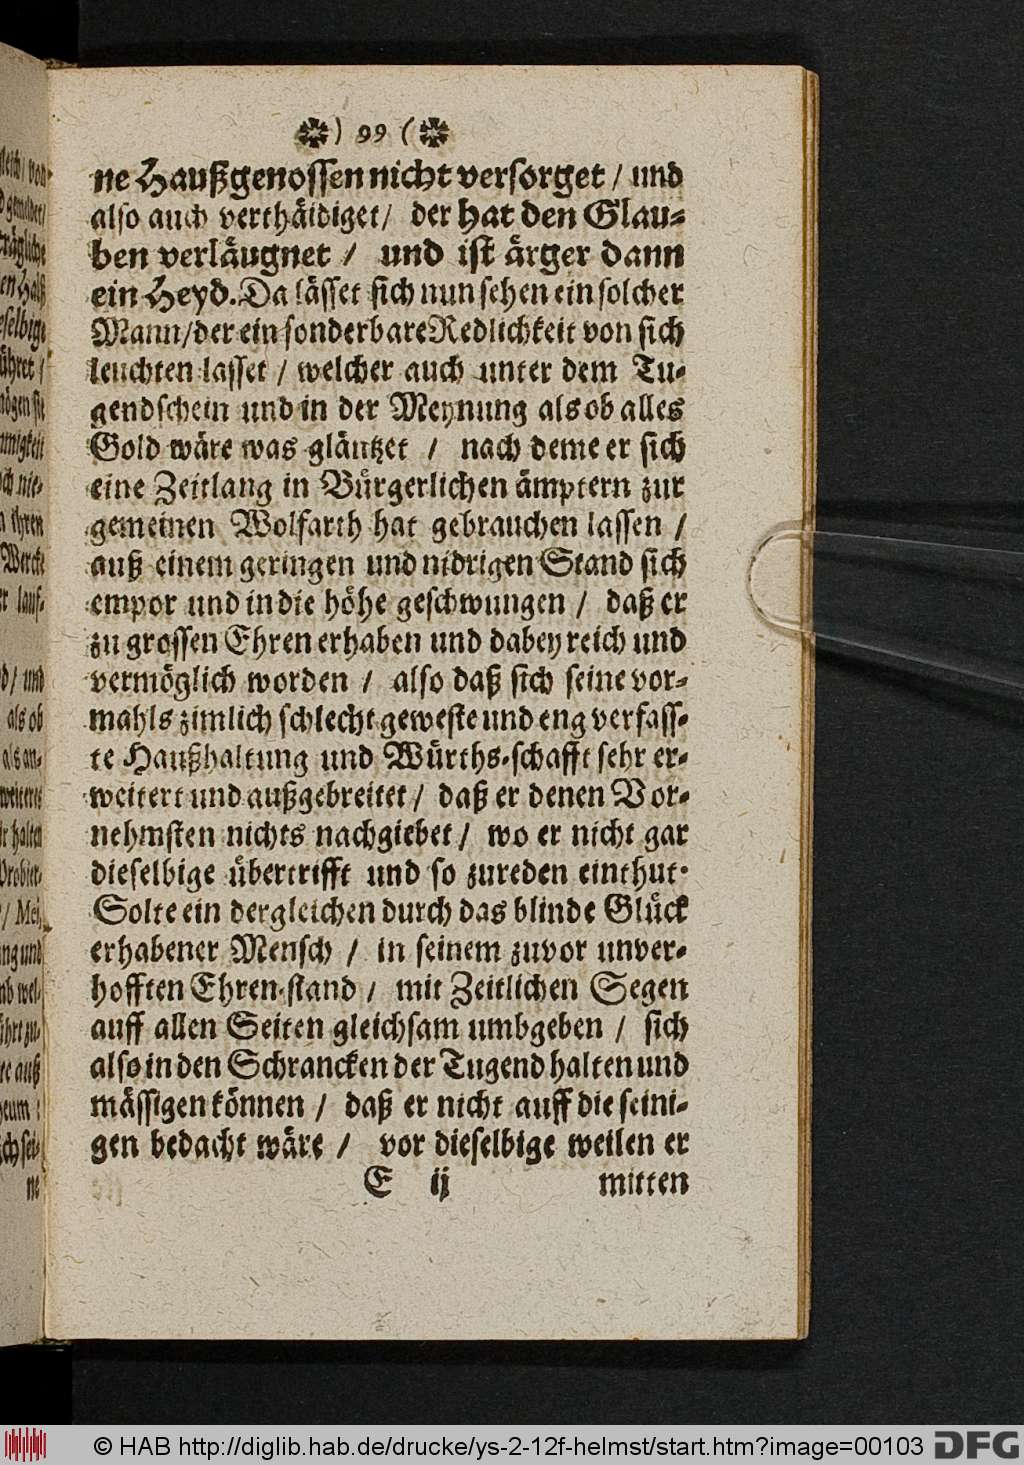 ) 99 (
ne Haußgenossen nicht versorget / und
also auch verthäidiget / der hat den Glau-
ben verläugnet / und ist ärger dann
ein Heyd. Da lässet sich nun sehen ein solcher
Mann / der ein sonderbare Redlichkeit von sich
leuchten lasset / welcher auch unter dem Tu-
gendschein und in der Meynung als ob alles
Gold wäre was gläntzet / nach deme er sich
eine Zeitlang in Bürgerlichen ämptern zur
gemeinen Wolfarth hat gebrauchen lassen /
auß einem geringen und nidrigen Stand sich
empor und in die höhe geschwungen / daß er
zu grossen Ehren erhaben und dabey reich und
vermöglich worden / also daß sich seine vor-
mahls zimlich schlecht geweste und eng verfass-
te Haußhaltung und Würths-schafft sehr er-
weitert und außgebreitet / daß er denen Vor-
nehmsten nichts nachgiebet / wo er nicht gar
dieselbige übertrifft und so zureden einthut.
Solte ein dergleichen durch das blinde Glück
erhabener Mensch / in seinem zuvor unver-
hofften Ehren-stand / mit Zeitlichen Segen
auff allen Seiten gleichsam umbgeben / sich
also in den Schrancken der Tugend halten und
mässigen können / daß er nicht auff die seini-
gen bedacht wäre / vor dieselbige weilen er
E ij mitten
© HAB http://diglib.hab.de/drucke/ys-2-12f-helmst/start.htm?image=00103 DFG